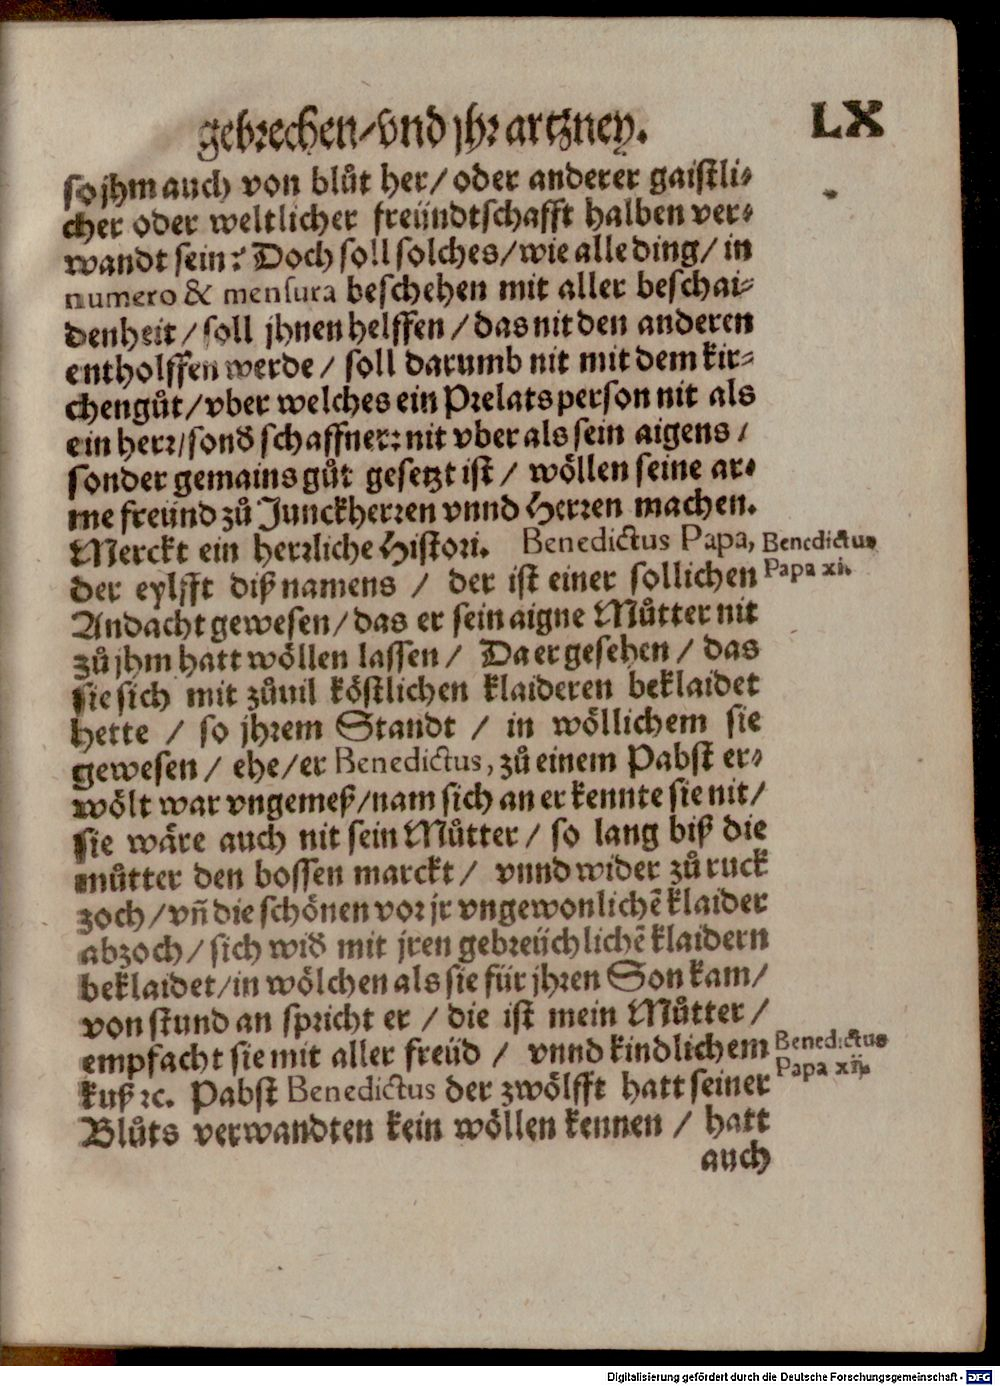 gebrechen/vnd jhr artzney. LX
so jhm auch von blůt her/ oder anderer gaistli-
cher oder weltlicher freündtschafft halben ver-
wandt sein? Doch soll solches/ wie alle ding/ in
numero & mensura beschehen mit aller beschai-
denheit/ soll jhnen helffen/ das nit den anderen
entholffen werde/ soll darumb nit mit dem kir-
chengůt/ vber welches ein Prelats person nit als
ein herr/ sonď schaffner: nit vber als sein aigens/
sonder gemains gůt gesetzt ist/ wöllen seine ar-
me freünd zů Junckherren vnnd Herren machen.
Merckt ein herrliche Histori. Benedictus Papa,
Benedictus
der eylfft diß namens/ der ist einer sollichen
Papa xi.
Andacht gewesen/ das er sein aigne Můtter nit
zů jhm hatt wöllen lassen/ Da er gesehen/ das
sie sich mit zůuil köstlichen klaideren beklaidet
hette/ so jhrem Standt/ in wöllichem sie
gewesen/ ehe/ er Benedictus, zů einem Pabst er-
wölt war vngemeß/ nam sich an er kennte sie nit/
sie wäre auch nit sein Můtter/ so lang biß die
můtter den bossen marckt/ vnnd wider zů ruck
zoch/ vñ die schönen vor jr vngewonlichẽ klaider
abzoch/ sich widˀ mit jren gebreüchlichẽ klaidern
beklaidet/ in wölchen als sie für jhren Son kam/
von stund an spricht er/ die ist mein Můtter/
empfacht sie mit aller freüd/ vnnd kindlichem
Benedictus
kuß ꝛc. Pabst Benedictus der zwölfft hatt seiner
Papa xij.
Blůts verwandten kein wöllen kennen/ hatt
auch
Digitalisierung gefördert durch die Deutsche Forschungsgemeinschaft - DFG